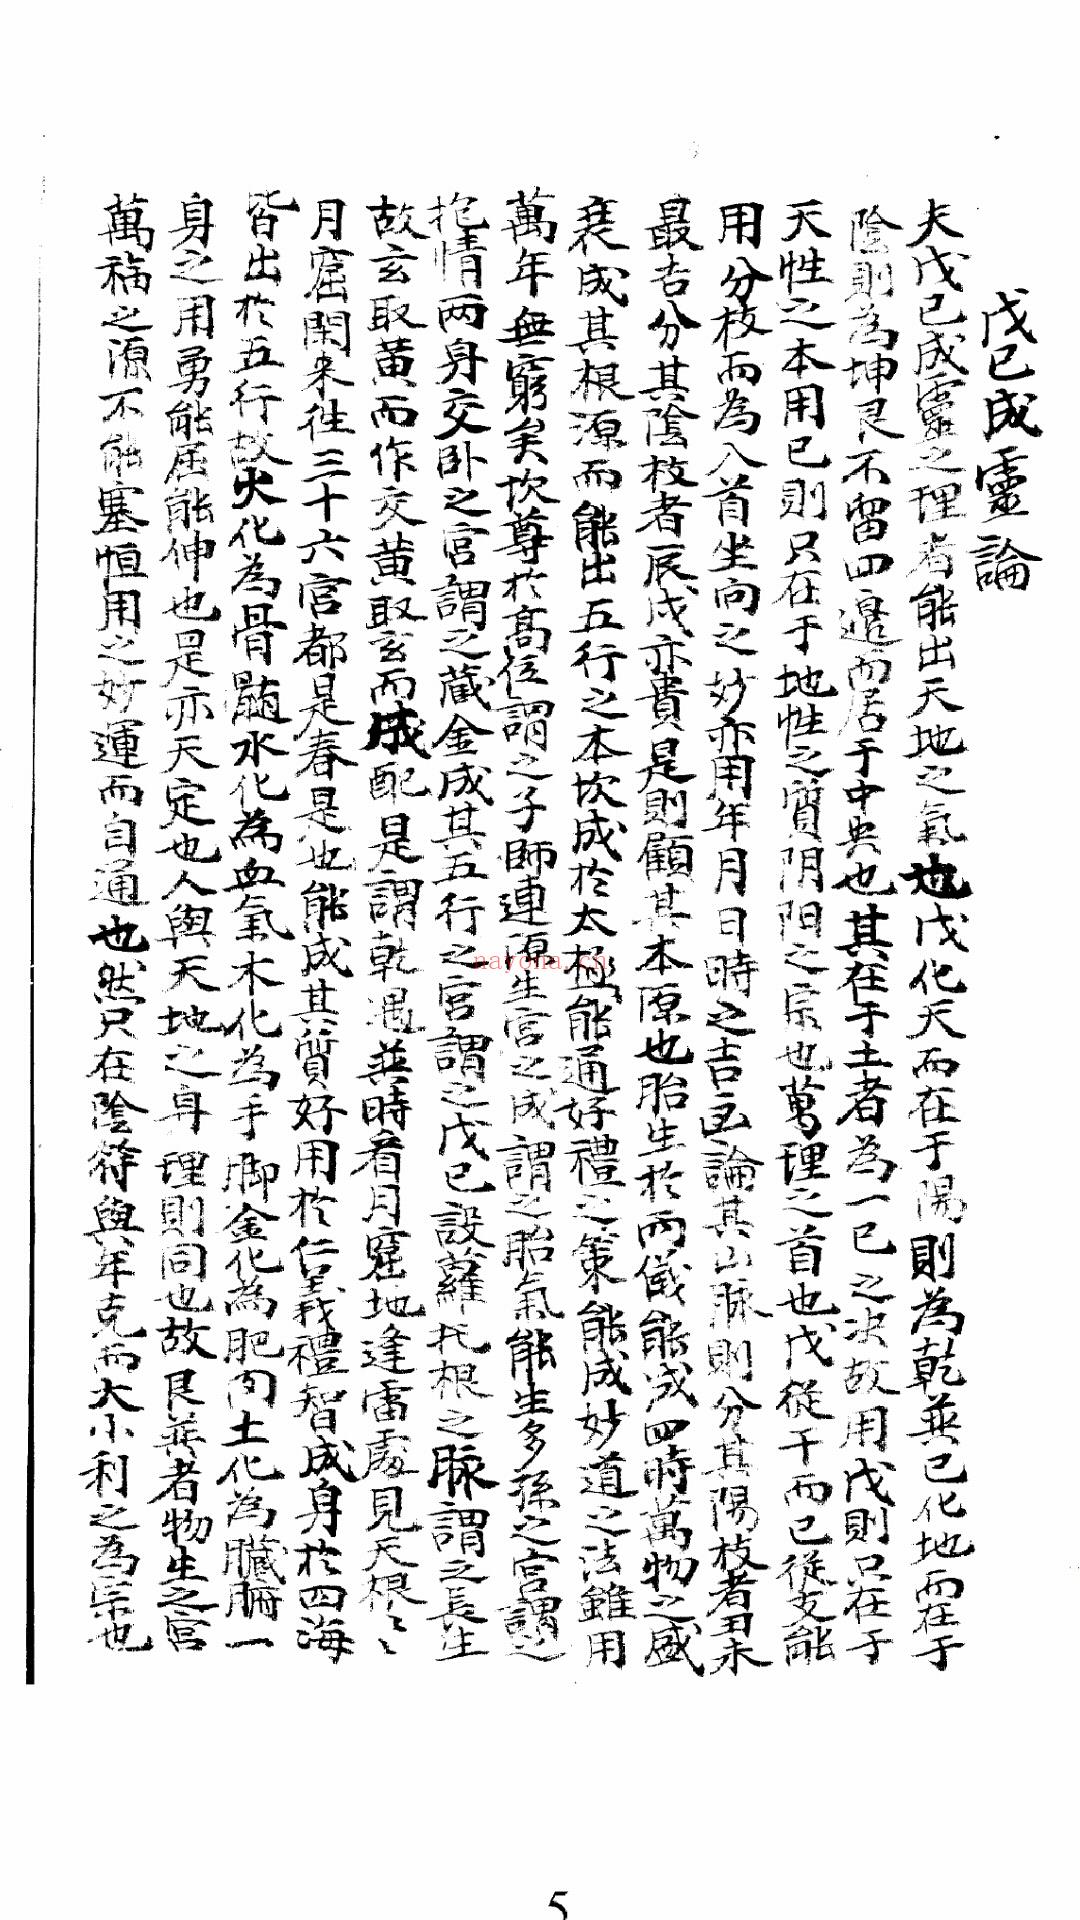 戊己成靈論
夫戊己成靈之理者能出天地之氣也戊化天而在于陽則為乾巽己化地而在于
陰則為坤艮不留四邊而居于中央也其在于土者為一己之决故用戊則只在于
天性之本用己則只在于地性之質阴阳之宗也萬理之首也戊從干而己從支能
用分枝而為入首坐向之妙亦用年月日時之吉凶論其山脉則分其陽枝者丑未
最吉分其陰枝者辰戌亦貴是則顧其本原也胎生於两儀能成四時萬物之盛
衰成其根源而能出五行之本坎成於太極能通好禮之策能成妙道之法雖用
萬年無窮矣坎尊於高位謂之子師連源生宫之成謂之胎氣能生多孫之宫謂之
抱情两身交卧之宫謂之藏金成其五行之宫謂之戊己設蘿托根之脉謂之長生
故玄取黄而作交黄取玄而成配是謂乾遇巽時看月窟地逢雷處見天根〻
月窟閑来往三十六宫都是春是也能成其質好用於仁義禮智成身於四海
皆出於五行故火化為骨髄水化為血氣木化為手脚金化為肥肉土化為臟腑一
身之用勇能屈能伸也是亦天定也人與天地之身理則同也故艮巽者物生之宫
萬福之源不能塞恒用之妙運而自通也然只在陰符與年克而大小利之為宗也
nayona.cn
5